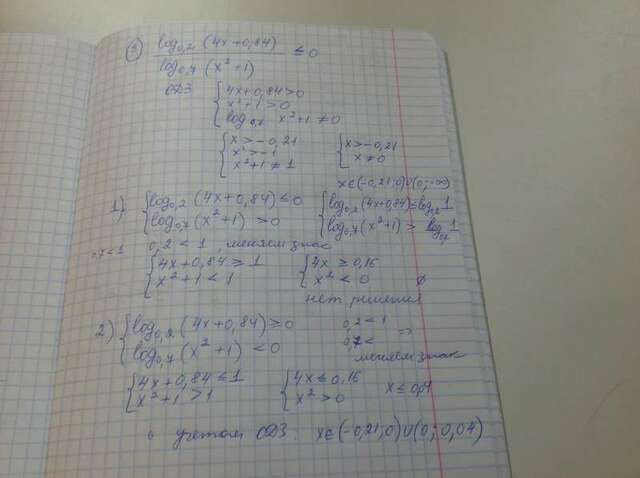 ③ log₀,₂ (4x+0,84) / log₀,₇ (x²+1) ≤ 0
ОДЗ { 4x+0,84>0
x²+1>0
log₀,₇ x²+1 ≠ 0
{ x>-0,21
x²>-1
x²+1≠1
{ x>-0,21
x≠0
x∈(-0,21;0)∪(0;+∞)
1) { log₀,₂ (4x+0,84) ≤ 0
log₀,₇ (x²+1) > 0
{ log₀,₂ (4x+0,84) ≤ log₀,₂ 1
log₀,₇ (x²+1) > log₀,₇ 1
0,7<1 0,2<1, меняем знак
{ 4x+0,84 ≥ 1
x²+1 < 1
{ 4x ≥ 0,16
x² < 0 ∅
нет решения
2) { log₀,₂ (4x+0,84) ≥ 0
log₀,₇ (x²+1) < 0
0,2<1
0,7< ⇒
меняем знак
{ 4x+0,84 ≤ 1
x²+1 > 1
{ 4x ≤ 0,16
x² > 0
x ≤ 0,04
с учетом ОДЗ: x∈(-0,21;0)∪(0;0,04)